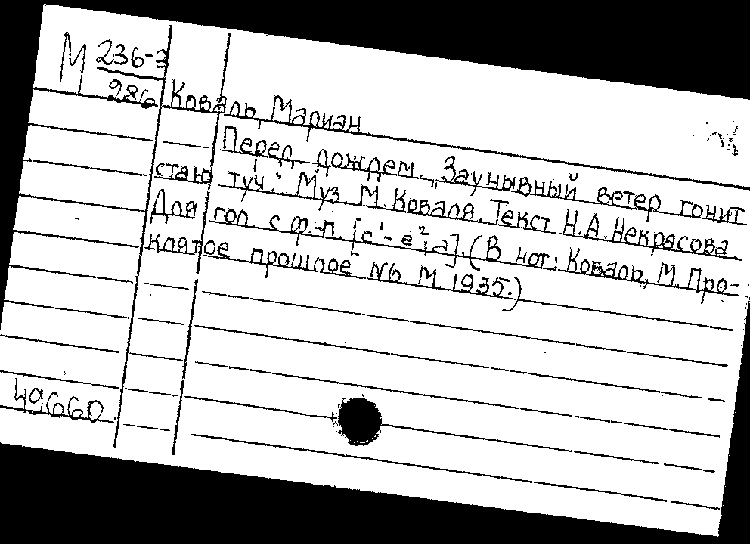 М 236-3
286 Коваль, Мариан
Перед дождем. „Заунывный ветер гонит
стаю туч." Муз. М. Коваля. Текст Н.А. Некрасова.
Для гол. с ф.-п. [c¹-e²;a]. (В нот: Коваль, М. Про-
клятое прошлое №6 М. 1935.)
49660